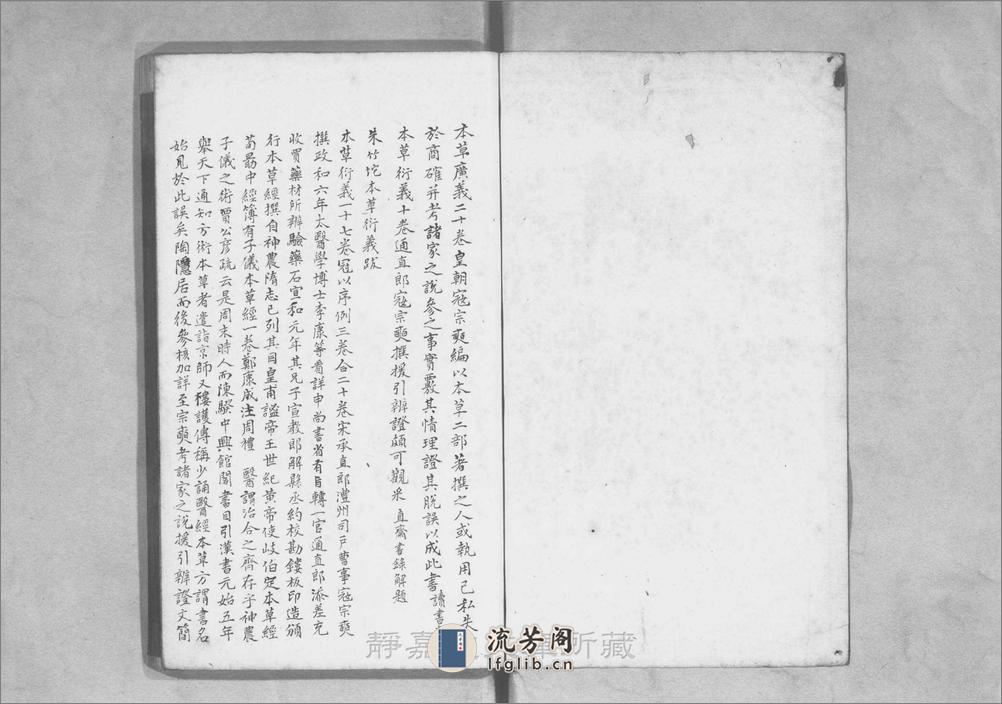 本草廣義二十卷皇朝寇宗奭編以本草二部著撰之人或執用己私失
於商確并考諸家之說參之事實覈其情理證其脫誤以成此書讀書
本草衍義十卷通直郎寇宗奭撰援引辨證頗可觀采 直齋書錄解題
朱竹垞本草衍義跋
本草衍義一十七卷冠以序例三卷合二十卷宋承直郎澧州司戶曹事寇宗奭
撰政和六年太醫學博士李康等看詳申尚書省有旨轉一官通直郎添差充
收買藥材所辨驗藥石宣和元年其兄子宣教郎解縣丞約校勘鏤板印造頒
行本草經撰自神農隋志已列其目皇甫謐帝王世紀黃帝使岐伯定本草經
荀勗中經簿有子儀本草經一卷鄭康成注周禮 醫謂治合之齊存乎神農
子儀之術賈公彥疏云是周末時人而陳騤中興館閣書目引漢書元始五年
舉天下通知方術本草者遣詣京師又樓護傳稱少誦醫經本草方謂書名
始見於此誤矣陶隱居而後參核加詳至宗奭考諸家之說援引辨證文簡
靜嘉 所藏
流芳阁
lfglib.cn